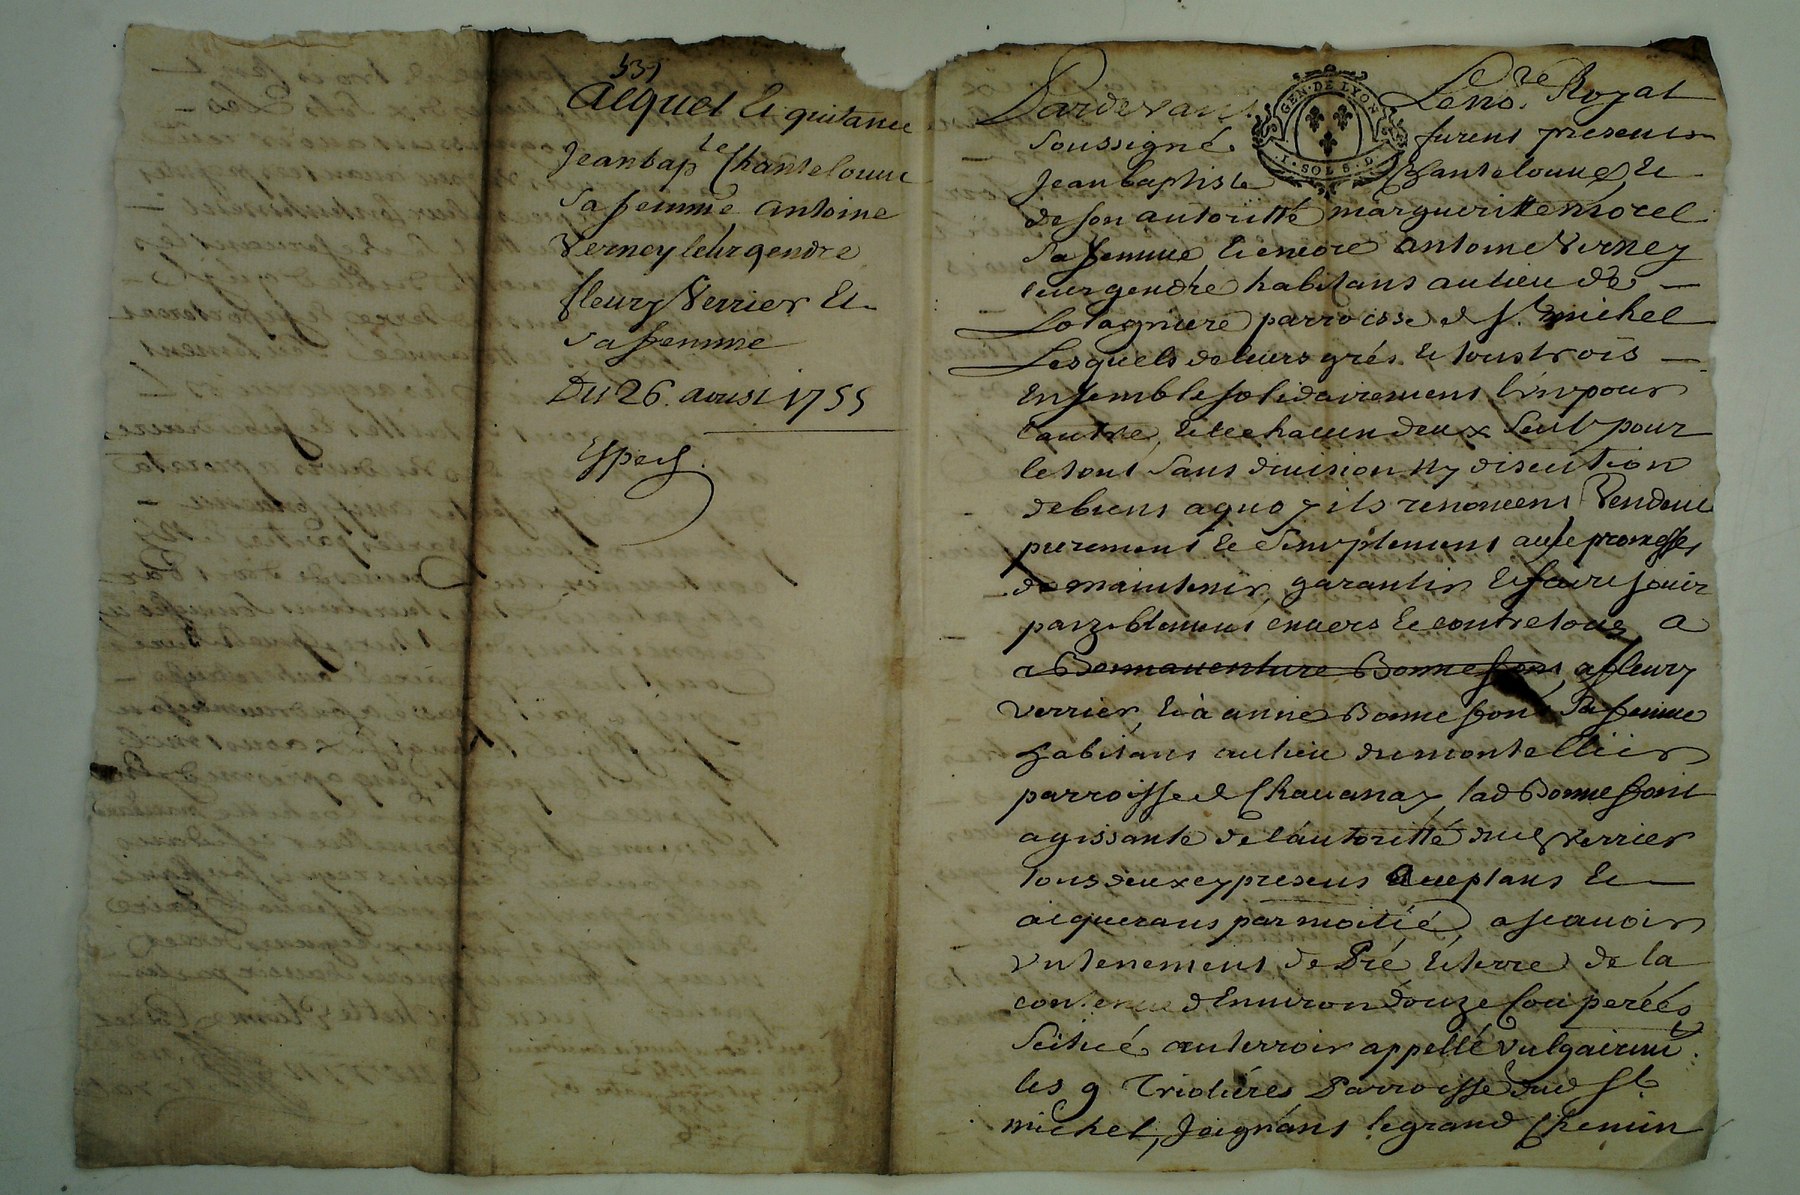 531
Acquet et quitance
Jean bapte Chantelouue
Sa femme antoine
Verney leur gendre
fleury Verrier et
Sa femme
Du 26 aoust 1755
GEN · DE LYON
I · SOL 8 · D
Pardevant Le nore Royal
Soussigné furent presents
Jean baptiste Chantelouue, et
de son autoritté margueritte morel
Sa femme et encore antoine Verney
leur gendre habitans au lieu de
parroisse de St. michel
Lesquels de leurs grés et tous trois
Ensemble solidairement l'un pour
l'autre, et le chacun deux Seul pour
le tout Sans diuision ny discution
de biens a quoy ils renoncent Vendent
purement et Simplement auec promesses
de maintenir, garantir et faire jouir
paiziblement enuers et contre tous a
a Bonnauenture Bonnefont, a fleury
verrier, et à anne Bonnefont Sa femme
habitans au lieu du montellier
parroisse de Chauanay, lad Bonnefont
agissante de l'autoritté dud Verrier
tous deux cy presens acceptans et
acquerans par moitié, a scauoir
Vn tenement de Pré et terre de la
contenue d'Enuiron douze Couperéés
Scitué au terroir appellé vulgairemt.
les Parroisse dud St.
michel, Joignans le grand Chemin